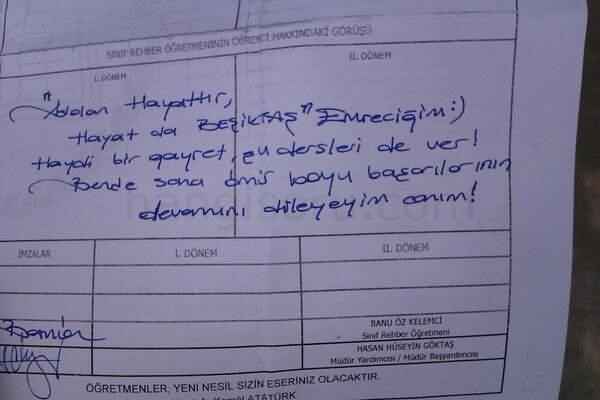 SINIF REHBER ÖĞRETMENİNİN ÖĞRENCİ HAKKINDAKİ GÖRÜŞÜ
I. DÖNEM II. DÖNEM
"Kalan Hayattır,
Hayat da BEŞİKTAŞ" Emreciğim:)
Haydi bir gayret, şu dersleri de ver!
Bende sana ömür boyu başarılarının
devamını dileyeyim canım!
İMZALAR I. DÖNEM II. DÖNEM
BANU ÖZ KELEMCİ
Sınıf Rehber Öğretmeni
HASAN HÜSEYİN GÖKTAŞ
Müdür Yardımcısı / Müdür Başyardımcısı
ÖĞRETMENLER; YENİ NESİL SİZİN ESERİNİZ OLACAKTIR.
Kemal ATATÜRK